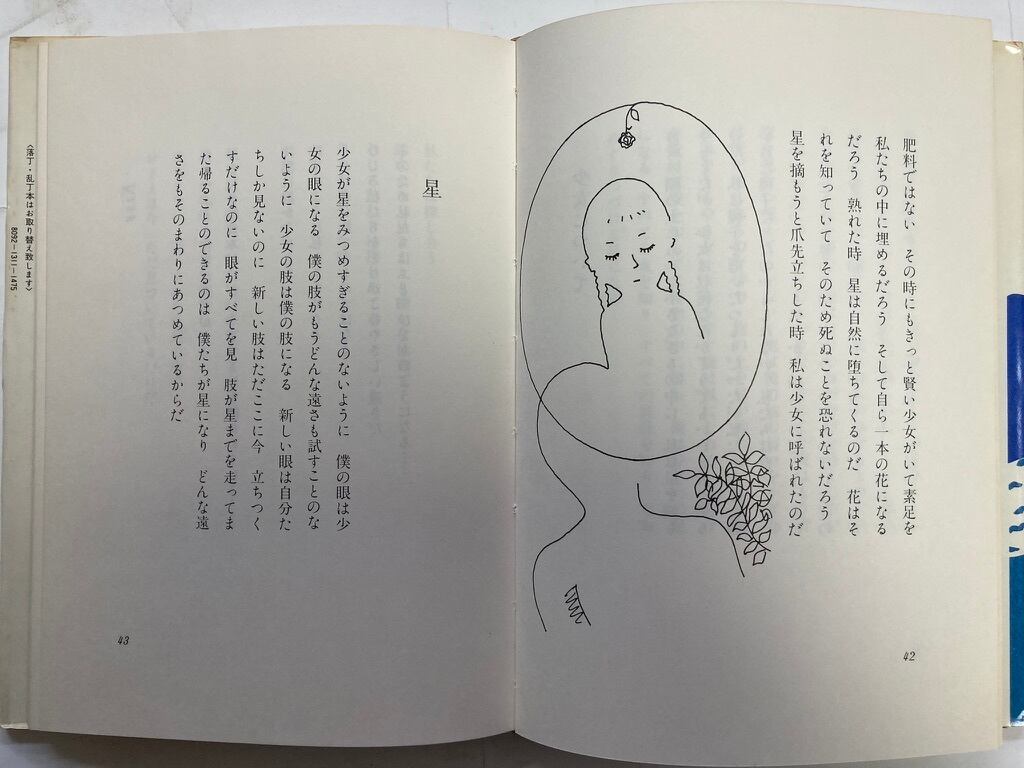 肥料ではない　その時にもきっと賢い少女がいて素足を
私たちの中に埋めるだろう　そして自ら一本の花になる
だろう　熟れた時　星は自然に堕ちてくるのだ　花はそ
れを知っていて　そのため死ぬことを恐れないだろう
星を摘もうと爪先立ちした時　私は少女に呼ばれたのだ
42
星
少女が星をみつめすぎることのないように　僕の眼は少
女の眼になる　僕の肢がもうどんな遠さも試すことのな
いように　少女の肢は僕の肢になる　新しい眼は自分た
ちしか見ないのに　新しい肢はただここに今　立ちつく
すだけなのに　眼がすべてを見　肢が星までを走ってま
た帰ることのできるのは　僕たちが星になり　どんな遠
さをもそのまわりにあつめているからだ
43
〈落丁・乱丁本はお取り替え致します〉
8092−1311−1475